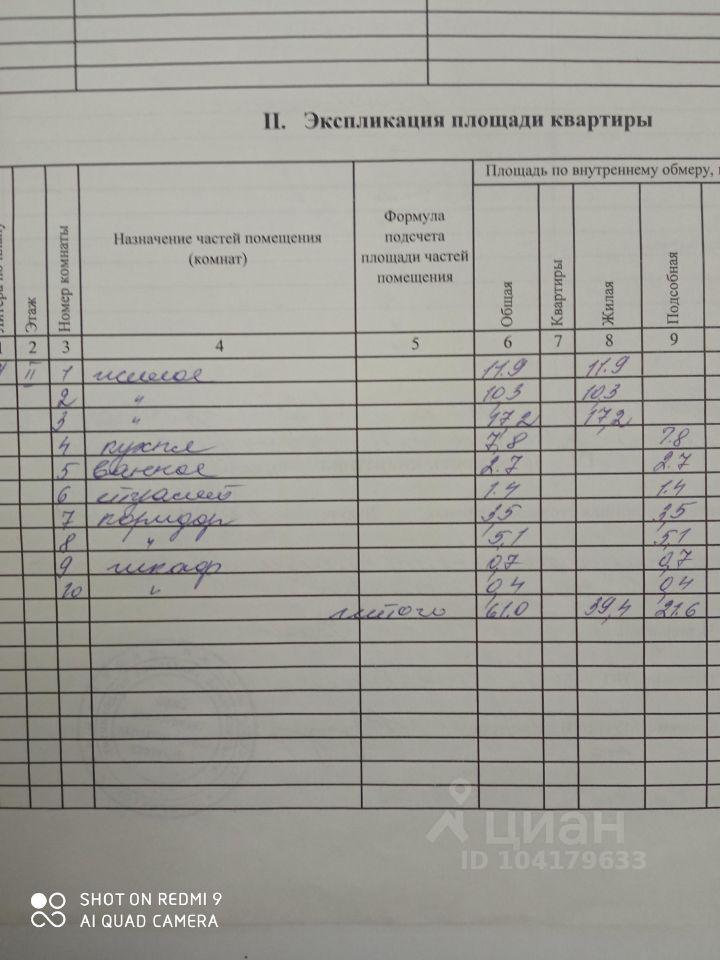 II. Экспликация площади квартиры
Площадь по внутреннему обмеру,
Этаж
Номер комнаты
Назначение частей помещения (комнат)
Формула подсчета площади частей помещения
Общая
Квартиры
Жилая
Подсобная
1 2 3 4 5 6 7 8 9
II 1 жилое 11.9 11.9
2 " 10,3 10,3
3 " 17,2 17,2
4 кухня 7,8 7.8
5 ванное 2.7 2.7
6 1.4 1.4
7 коридор 3,5 3,5
8 " 5,1 5,1
9 шкаф 0,7 0,7
10 " 0,4 0,4
итого 61.0 39,4 21.6
циан
ID 104179633
SHOT ON REDMI 9
AI QUAD CAMERA